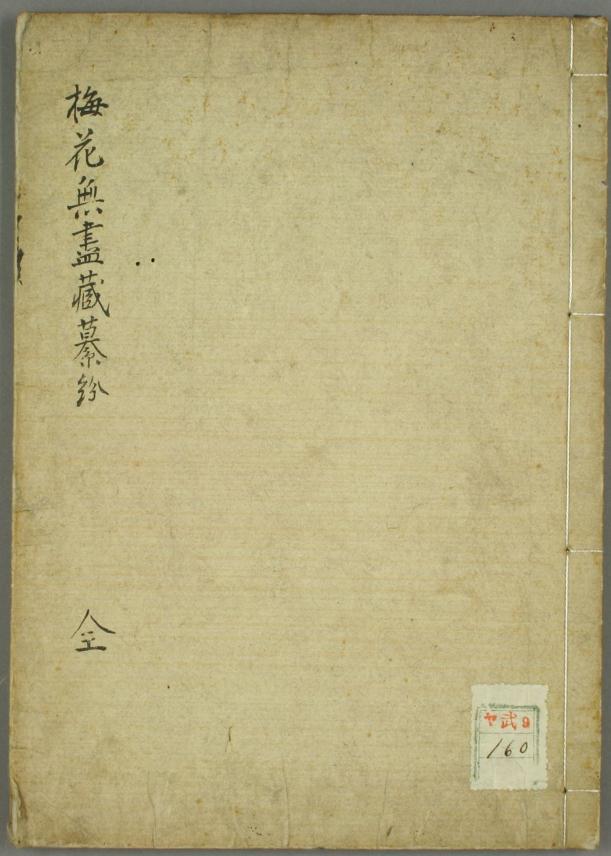 梅花無盡藏纂鈔
全
ヤ武9
160